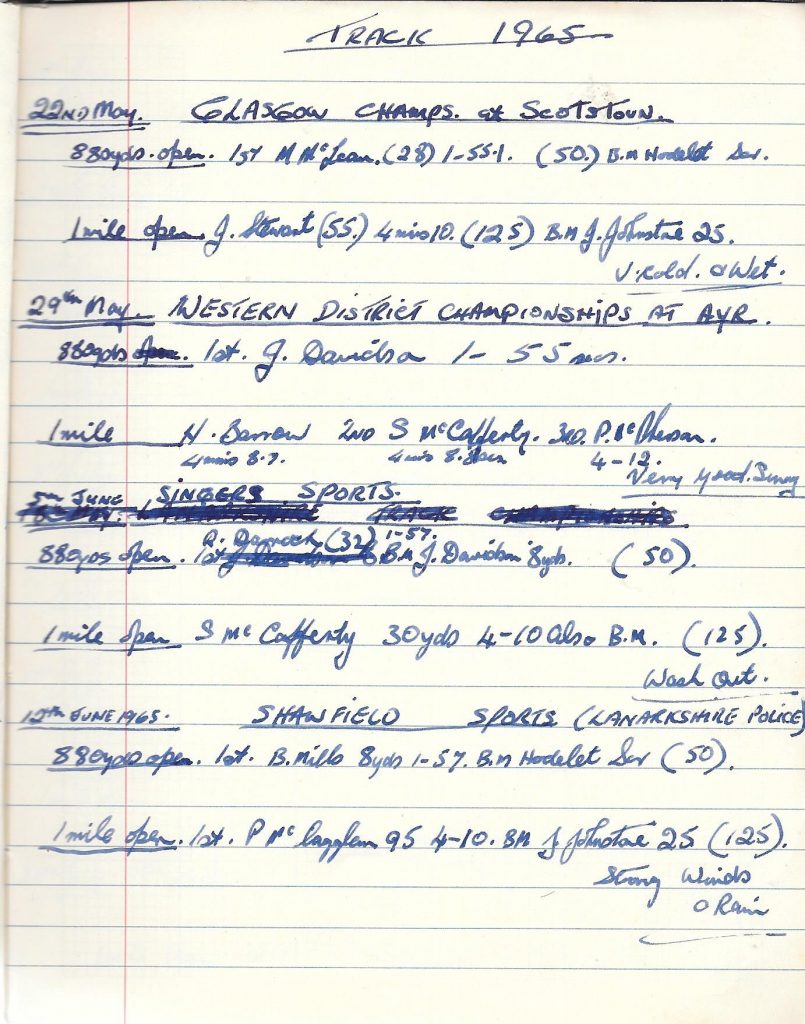 TRACK 1965
22ND May. GLASGOW CHAMPS. at SCOTSTOUN.
880yds. open. 1st M McLean. (28) 1-55.1. (50.) B.M Hodelet Scr.
1 mile open. J. Stewart (55.) 4 mins 10. (125) B.M J. Johnstone 25.
V. Cold. & Wet.
29th May. WESTERN DISTRICT CHAMPIONSHIPS AT AYR.
880yds open. 1st. J. Davidson 1-55 secs.
1 mile H. Barrow 2ND S McCafferty. 3RD. P. McPherson.
4 mins 8.7. 4 mins 8.8 4-12.
Very good. Sunny
5TH JUNE SINGERS SPORTS.
LANARKSHIRE TRACK CHAMPIONSHIPS
A. Darroch (32) 1-57.
880yds open. 1st B.M J. Davidson 8yds. (50).
1 mile open S McCafferty 30yds 4-10 also B.M. (125).
Wash Out.
12th JUNE 1965. SHAWFIELD SPORTS (LANARKSHIRE POLICE)
880yds open. 1st. B. Mills 8yds 1-57. B.M Hodelet Scr (50).
1 mile open. 1st. P McLagglan 95 4-10. BM J Johnstone 25 (125).
Strong Winds
& Rain